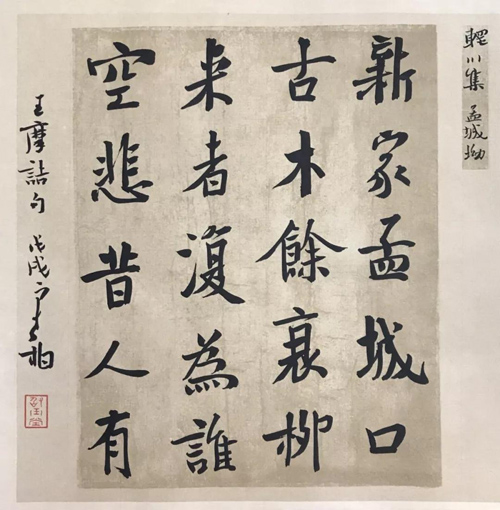 輞川集 孟城坳
新家孟城口
古木餘衰柳
来者復為誰
空悲昔人有
王摩詰句 戊戌